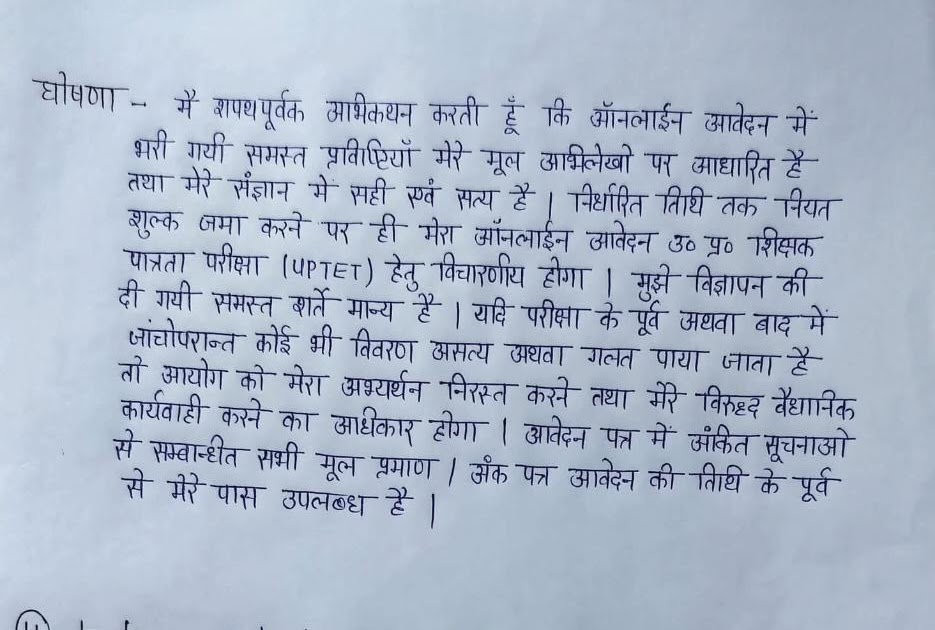 घोषणा - मै शपथपूर्वक अभिकथन करती हूँ कि ऑनलाईन आवेदन में
भरी गयी समस्त प्रविष्टियाँ मेरे मूल अभिलेखो पर आधारित है
तथा मेरे संज्ञान में सही एवं सत्य है | निर्धारित तिथि तक नियत
शुल्क जमा करने पर ही मेरा ऑनलाईन आवेदन उ० प्र० शिक्षक
पात्रता परीक्षा (UPTET) हेतु विचारणीय होगा | मुझे विज्ञापन की
दी गयी समस्त शर्ते मान्य है | यदि परीक्षा के पूर्व अथवा बाद में
जांचोपरान्त कोई भी विवरण असत्य अथवा गलत पाया जाता है
तो आयोग को मेरा अभ्यर्थन निरस्त करने तथा मेरे विरुद्द वैधानिक
कार्यवाही करने का अधिकार होगा | आवेदन पत्र में अंकित सूचनाओ
से सम्बन्धित सभी मूल प्रमाण / अंक पत्र आवेदन की तिथि के पूर्व
से मेरे पास उपलब्ध है |